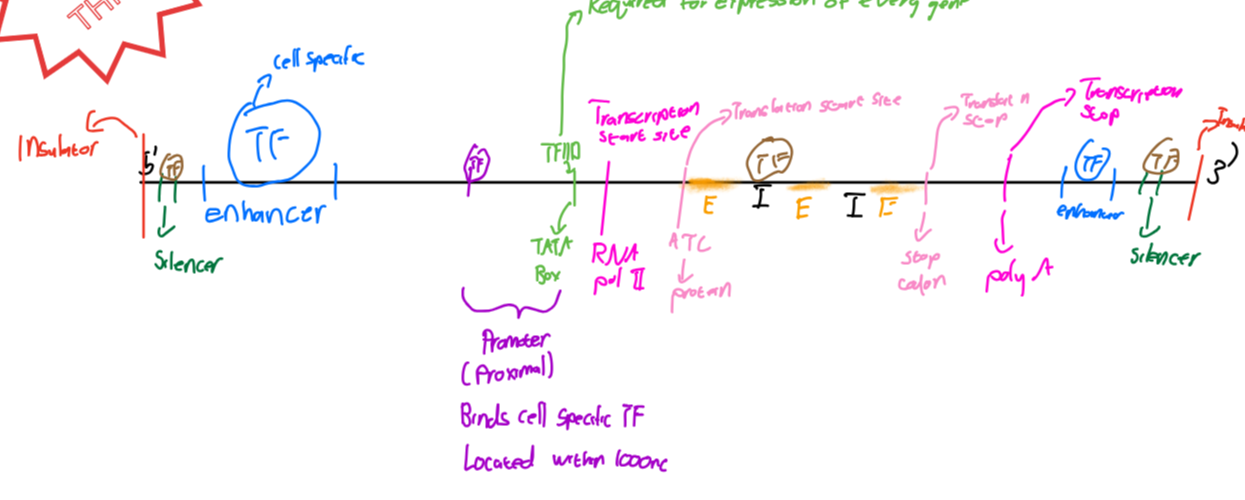 Required for expression of every gene
cell specific
Transcription
start site
Translation start site
Translation
stop
Transcription
stop
Insulator
5'
TF
TF
TF
TFIID
TF
TF
TF
3'
enhancer
E
I
E
I
E
enhancer
Silencer
TATA
Box
RNA
pol II
ATC
protein
stop
codon
poly A
Silencer
Promoter
(Proximal)
Binds cell specific TF
Located within 1000nc